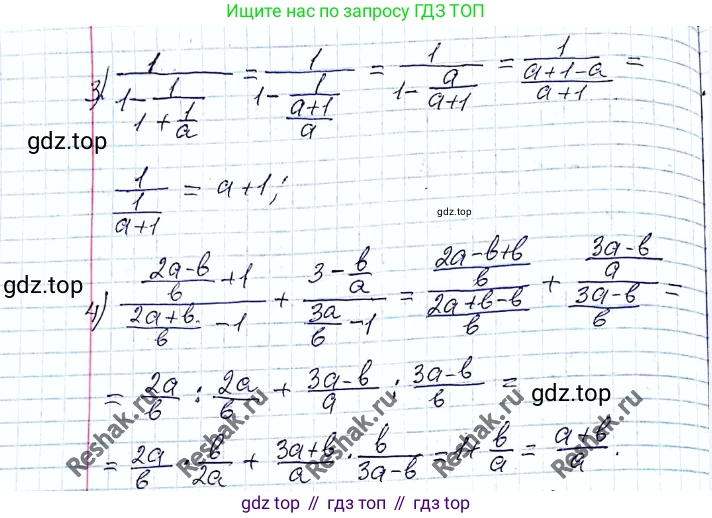 Ищите нас по запросу ГДЗ ТОП
3) 1/(1-1/(1+1/a)) = 1/(1-1/((a+1)/a)) = 1/(1-a/(a+1)) = 1/((a+1-a)/(a+1)) =
gdz.top
1/(1/(a+1)) = a+1;
gdz.top
gdz.top
4) ((2a-b)/b +1)/((2a+b)/b -1) + (3-b/a)/(3a/b -1) = ((2a-b+b)/b)/((2a+b-b)/b) + ((3a-b)/a)/((3a-b)/b) =
= 2a/b : 2a/b + (3a-b)/a : (3a-b)/b =
gdz.top
= 2a/b · b/2a + (3a+b)/a · b/(3a-b) = 1+ b/a = (a+b)/a.
Reshak.ru
Reshak.ru
Reshak.ru
Reshak.ru
gdz top // гдз топ // gdz.top